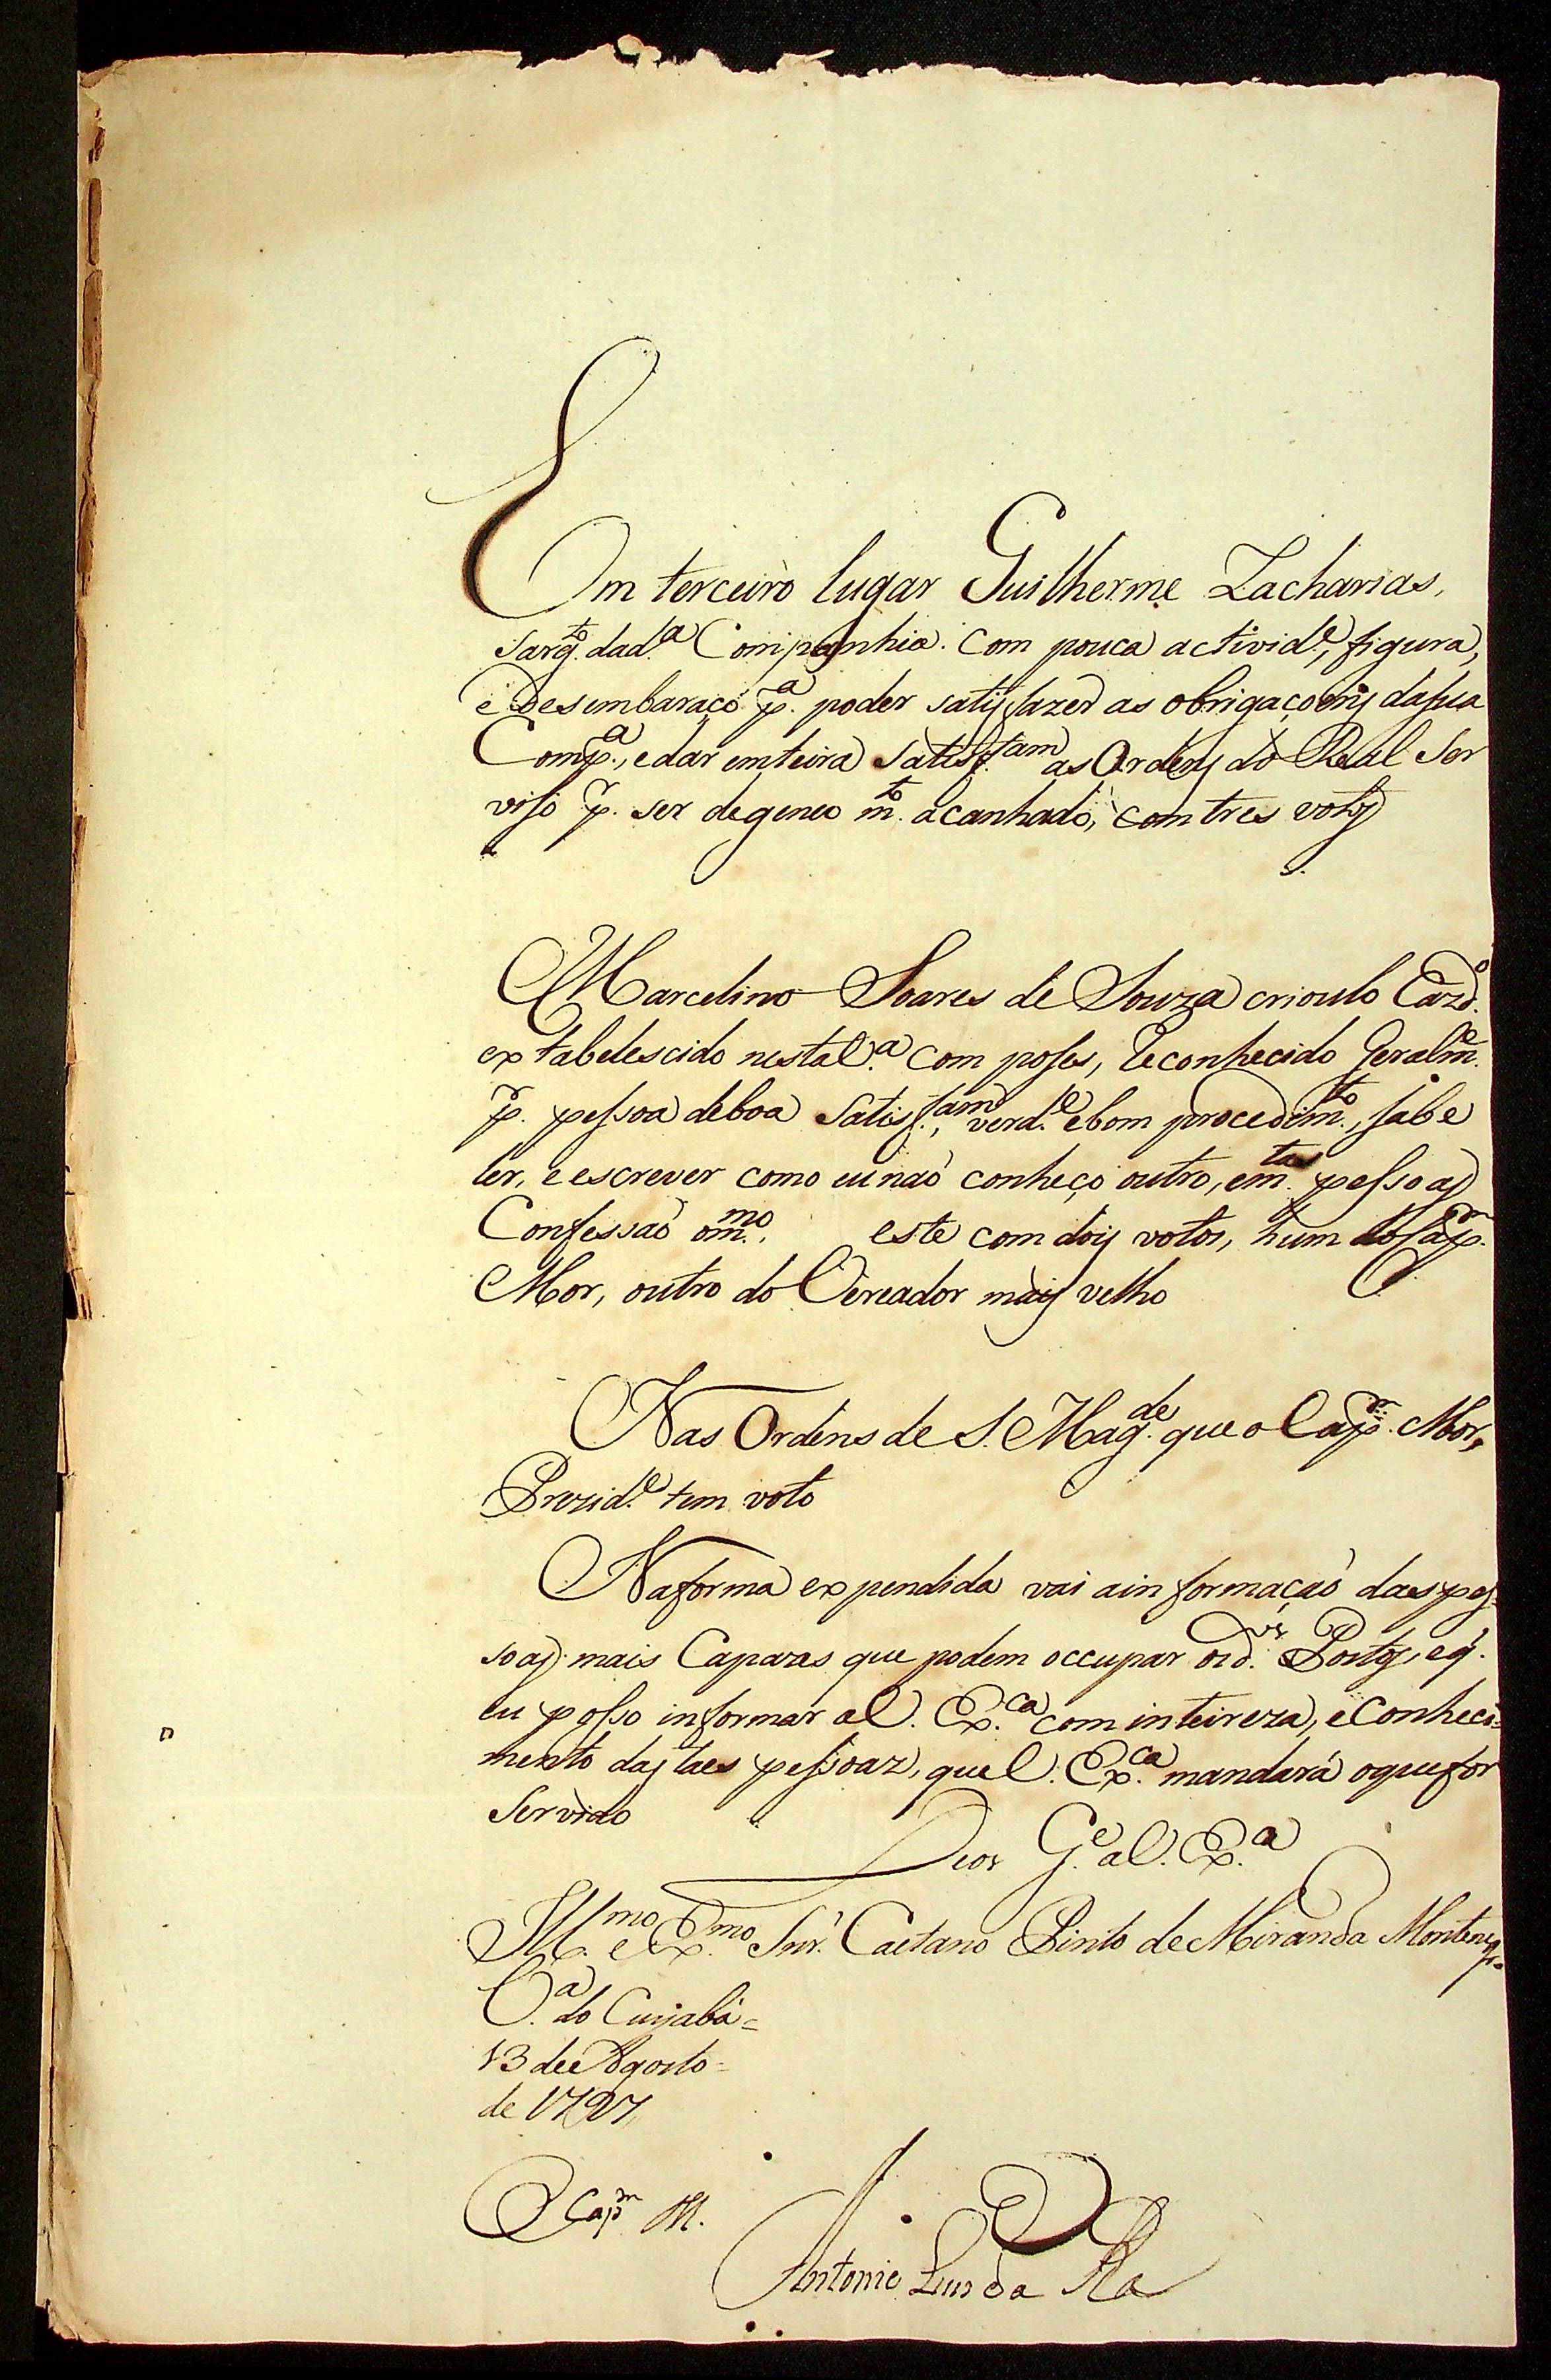 Em terceiro lugar Guilherme Zacharias,
Sarg.to dad.a Companhia. Com pouca activid.e, figura,
e Desembaraço p.a poder satisfazer as obrigaçoens dasua
Comp.a, edar emteira Satisf.tam as Ordens do Real Ser
viso p.r ser degenio m.to acanhado, com tres votos
Marcelino Soares de Souza crioulo Cazd.o
extabelescido nestaV.a com poses, Reconhecido Geralm.e
p.r pessoa deboa Satisf.am, verd.e ebom procedim.to, sabe
ler, e escrever como eu naó conheço outro, em.tas pessoas
Confessaó om.mo. este com dois votos, hum do Cap.m
Mor, outro do Vereador mais velho
Nas Ordens de S. Mag.de que o Cap.m Mor,
Prezid.e tem voto
Naforma expendida vai ainformaçaó das pes-
soas mais Capazas que podem occupar od.os Postos, eq.
eu posso informar aV. Ex.ca com inteireza, eConheci=
mento das taes pessoaz, queV. Ex.ca mandará oquefor
Servido
Deos G.e aV. Ex.a
Ill.mo e Ex.mo Snr. Caetano Pinto de Miranda Montenegro
V.a do Cuyabá=
13 de Agosto=
de 1797
O Cap.m M.
Antonio Luis da Rocha